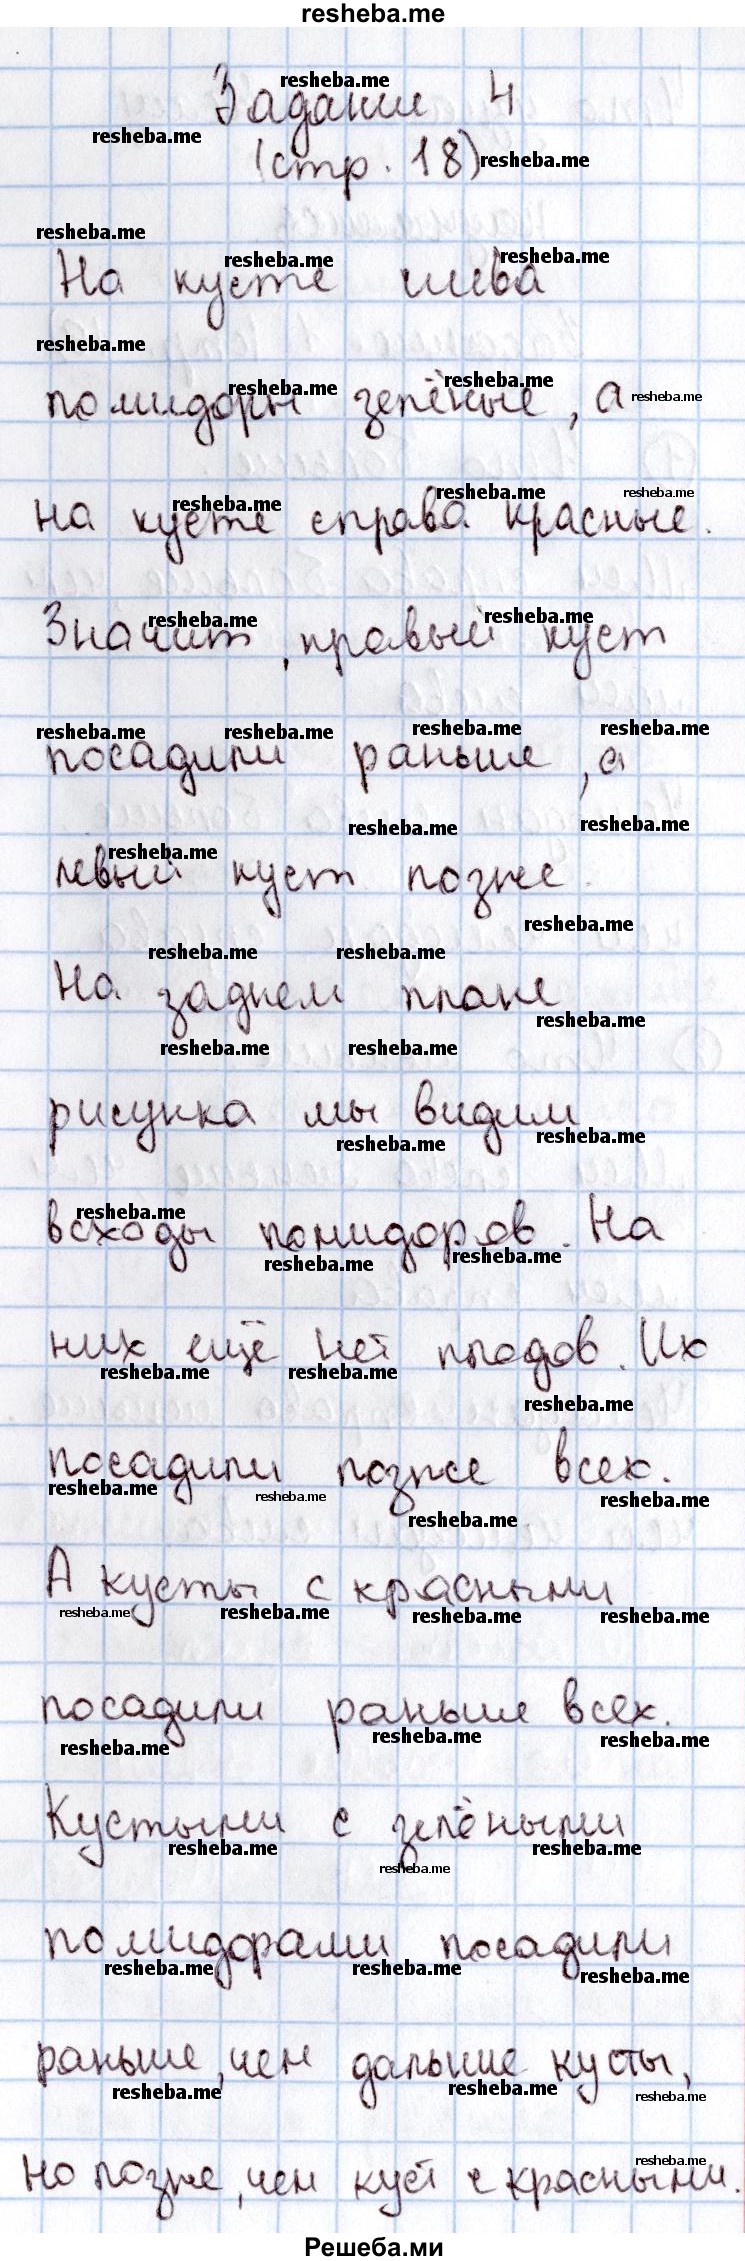 resheba.me
Задание 4
(стр. 18)
На кусте слева
помидоры зелёные, а
на кусте справа красные.
Значит, правый куст
посадили раньше, а
левый куст позже.
На заднем плане
рисунка мы видим
всходы помидоров. На
них ещё нет плодов. Их
посадили позже всех.
А кусты с красными
посадили раньше всех.
Кустыми с зелёными
помидорами посадили
раньше, чем дальние кусты,
но позже, чем куст с красными.
Решеба.ми